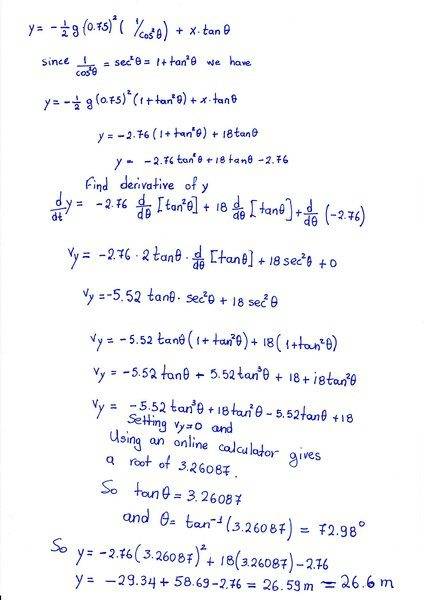 y = -½ g (0.75)² (1/cos²θ) + x·tanθ
since 1/cos²θ = sec²θ = 1+tan²θ we have
y = -½ g (0.75)² (1+tan²θ) + x·tanθ
y = -2.76 (1+tan²θ) + 18tanθ
y = -2.76 tan²θ + 18 tanθ - 2.76
Find derivative of y
d/dt y = -2.76 d/dθ [tan²θ] + 18 d/dθ [tanθ] + d/dθ (-2.76)
Vy = -2.76 · 2 tanθ · d/dθ [tanθ] + 18 sec²θ + 0
Vy = -5.52 tanθ · sec²θ + 18 sec²θ
Vy = -5.52 tanθ (1+tan²θ) + 18 (1+tan²θ)
Vy = -5.52 tanθ - 5.52 tan³θ + 18 + 18tan²θ
Vy = -5.52 tan³θ + 18 tan²θ - 5.52 tanθ + 18
Setting Vy=0 and
Using an online calculator gives
a root of 3.26087.
So tanθ = 3.26087
and θ = tan⁻¹ (3.26087) = 72.98°
So y = -2.76 (3.26087)² + 18 (3.26087) - 2.76
y = -29.34 + 58.69 - 2.76 = 26.59 m = 26.6 m